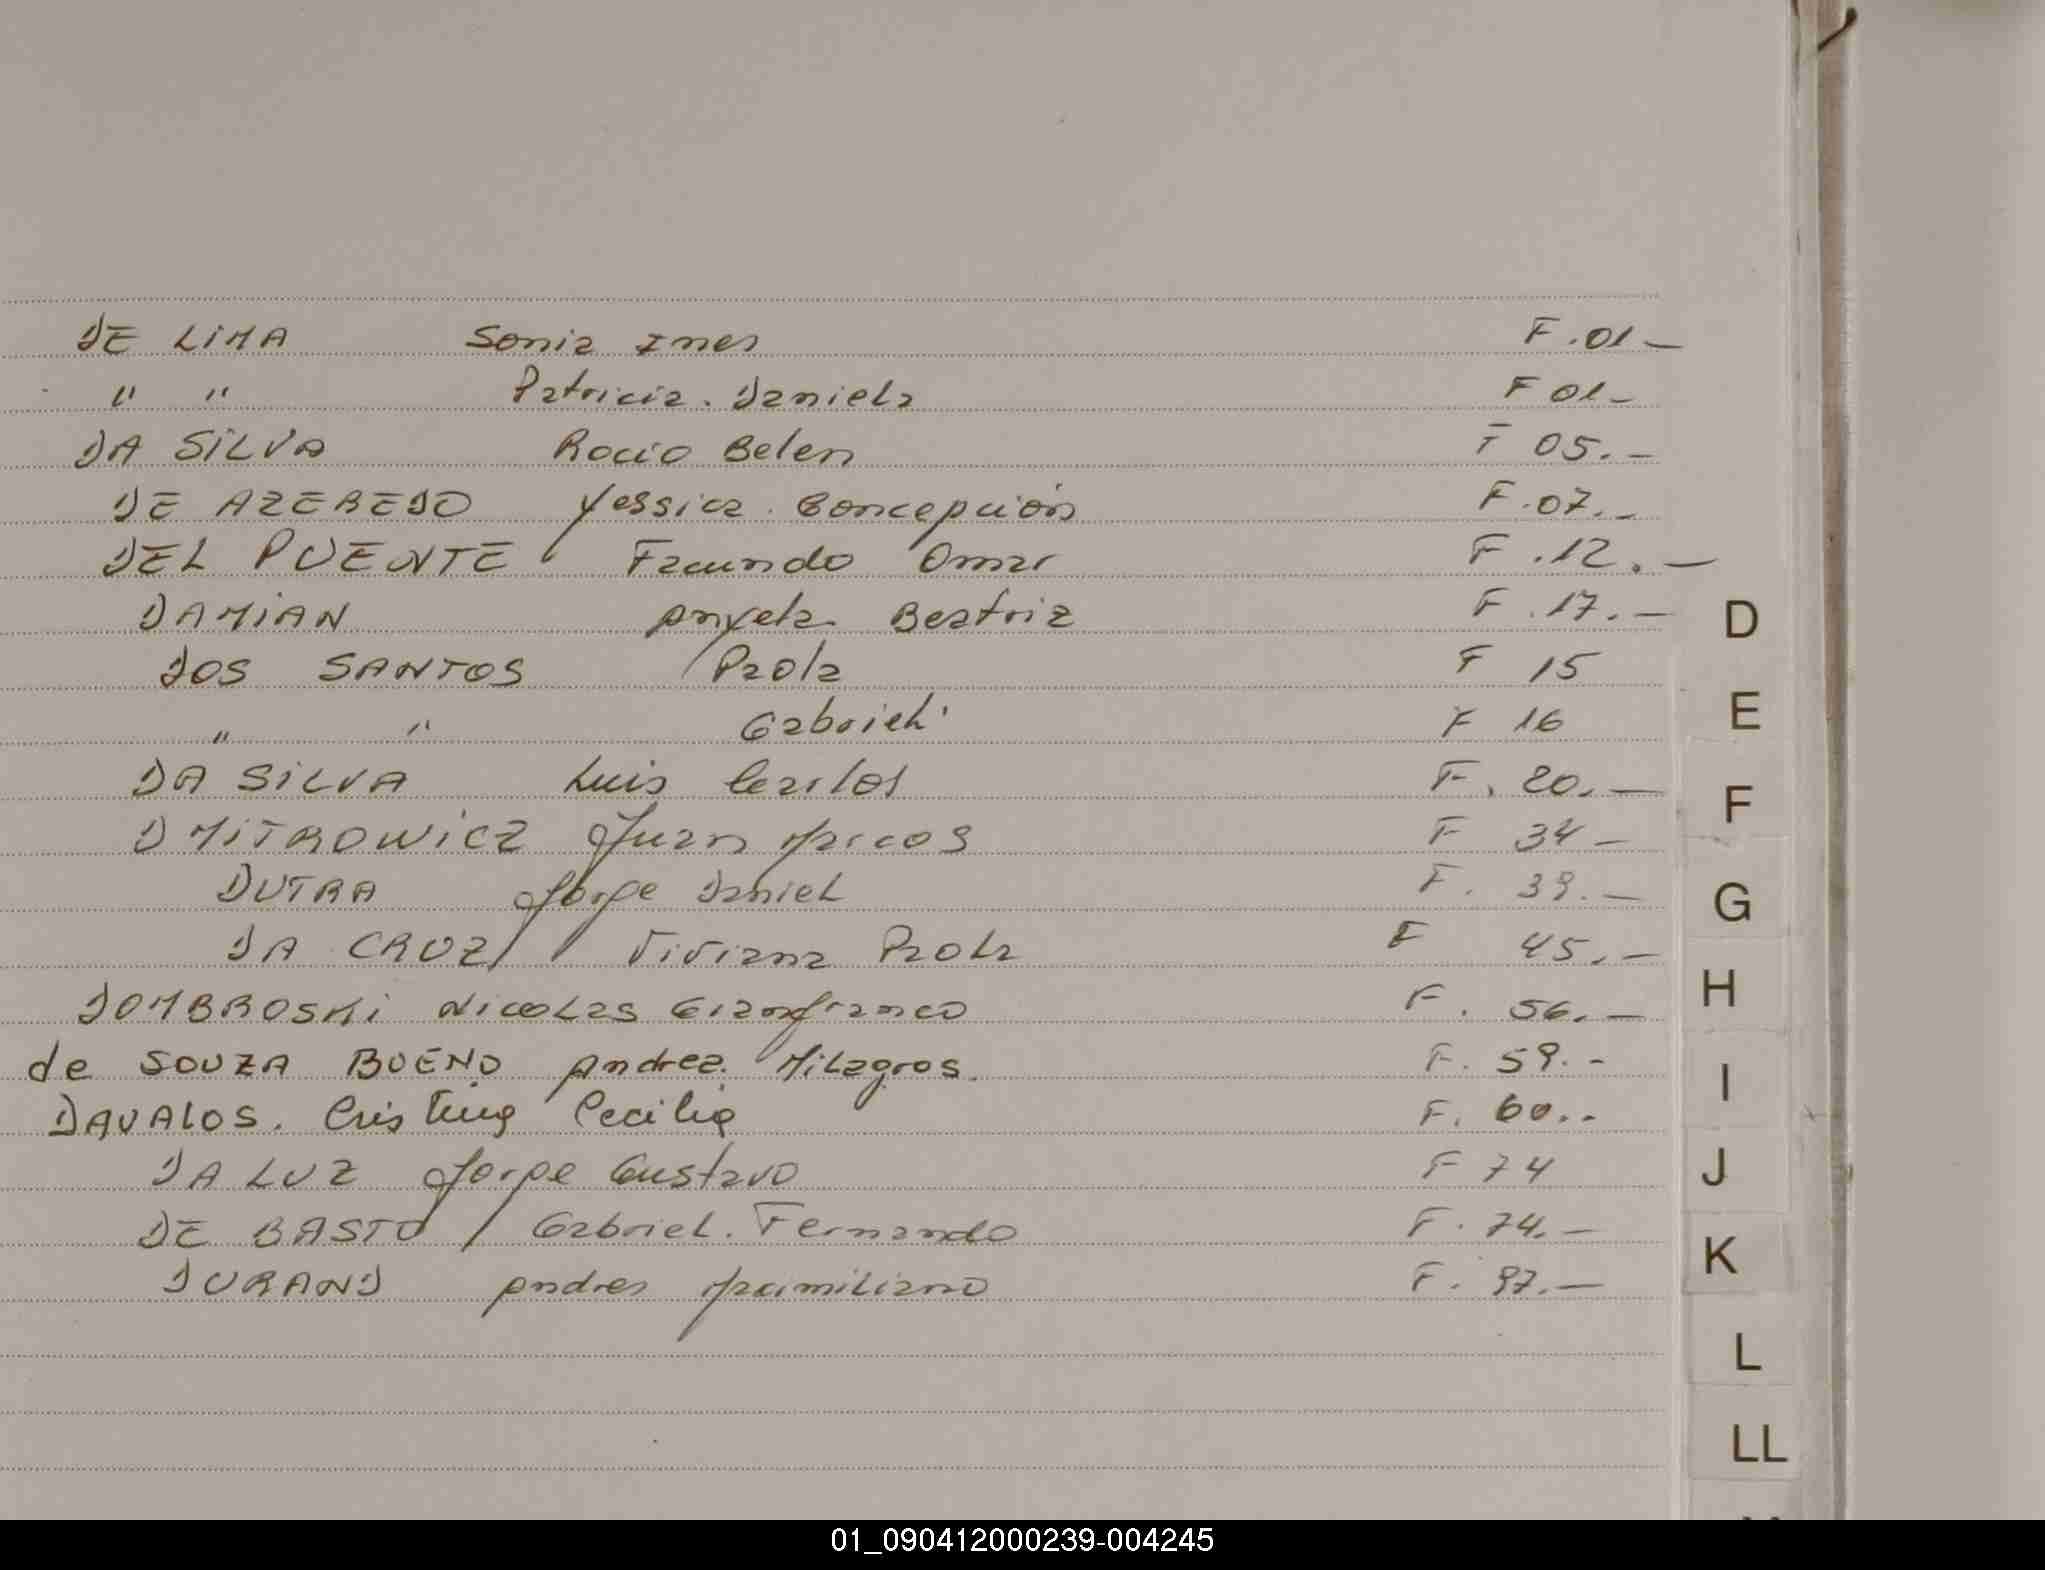 DE LIMA Sonia Ines F.01-
" " Patricia. Daniela F 01-
DA SILVA Rocio Belen F 05.-
DE AZEBEDO Yessica Concepción F.07.-
DEL PUENTE Facundo Omar F.12.-
DAMIAN Angela Beatriz F.17.-
DOS SANTOS Paola F 15
" " Gabriel F 16
DA SILVA Luis Carlos F. 20.-
DMITROWICZ Juan Marcos F 34-
DUTRA Jorge Daniel F. 39.-
DA CRUZ Viviana Paola F 45.-
DOMBROSKI Nicolas Gianfranco F. 56.-
de SOUZA BUENO Andrea Milagros. F. 59.-
DAVALOS. Cristina Cecilia F. 60.-
DA LUZ Jorge Gustavo F 74
DE BASTO Gabriel. Fernando F. 74.-
DURAND Andres Maximiliano F. 97.-
D
E
F
G
H
I
J
K
L
LL
01_090412000239-004245